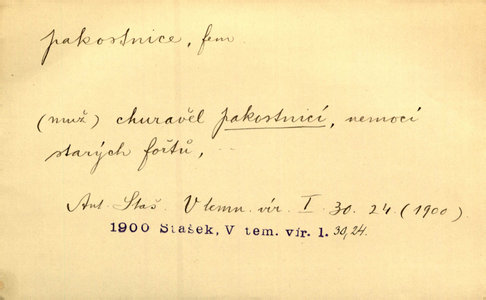 pakostnice, fem
(muž) churavěl pakostnicí, nemocí
starých fořtů, ..
Ant. Staš. V temn. vír. I. 30. 24. (1900).
1900 Stašek, V tem. vír. 1. 30,24.